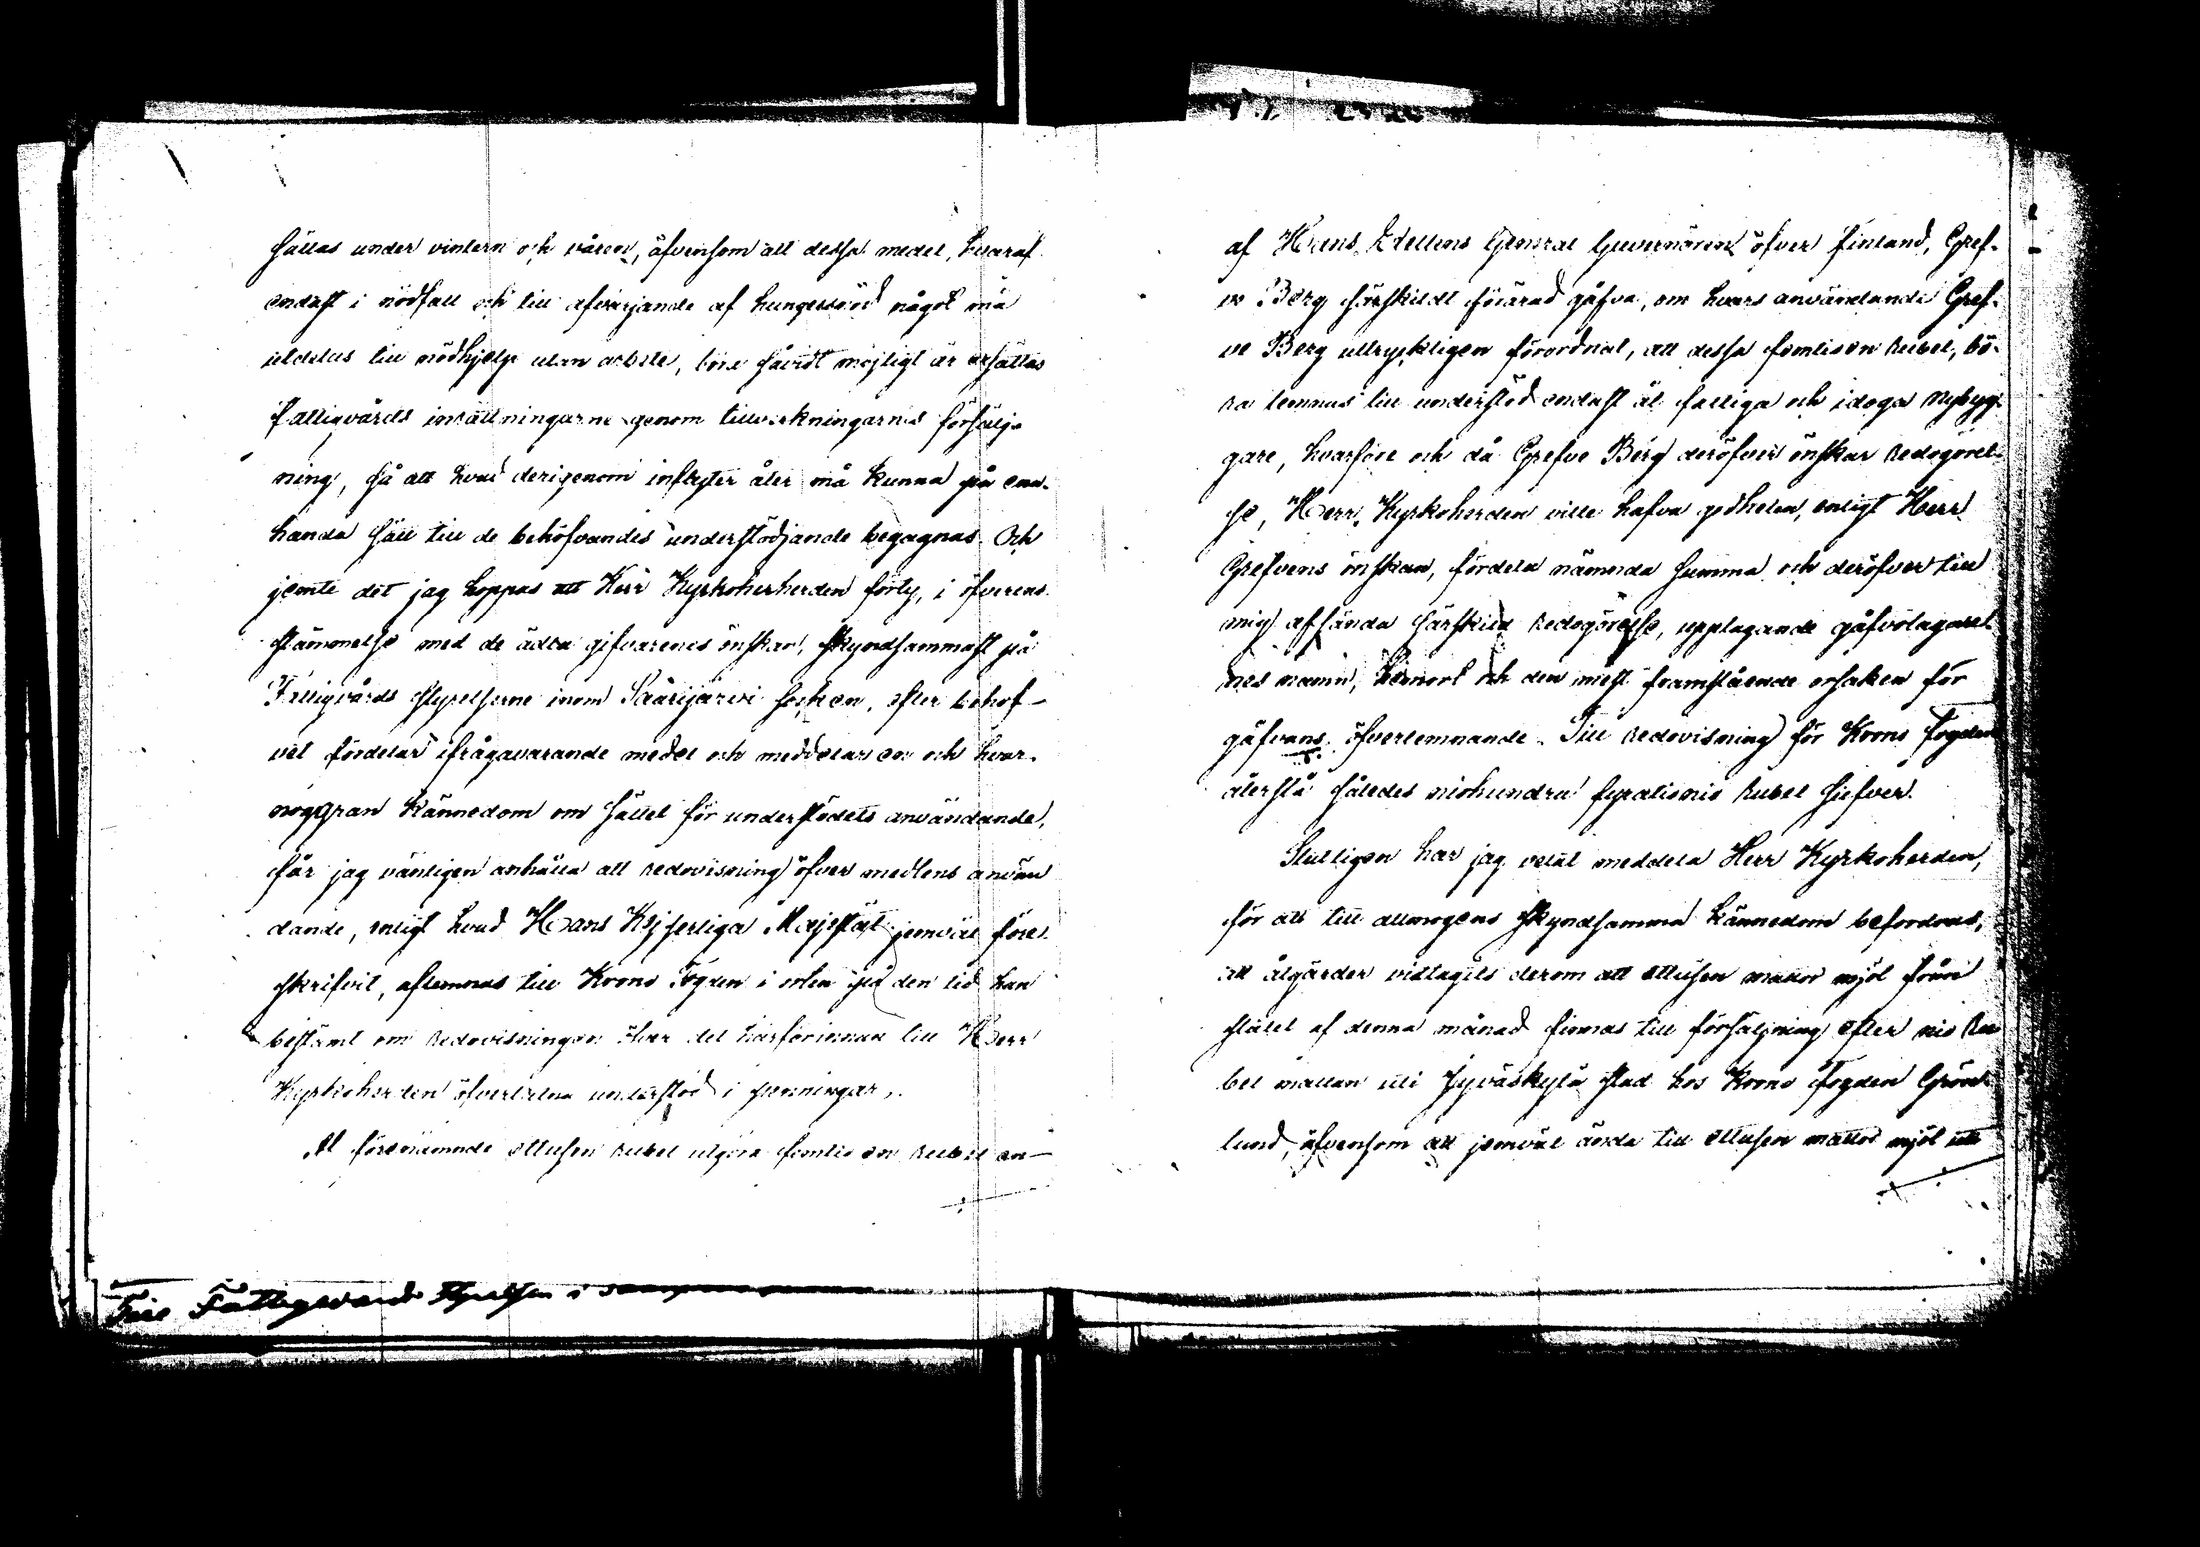 hållas under vintern och våren, äfvensom att dessa medel, hvaraf
endast i nödfall och till afvärjande af hungersnöd något må
utdelas till nödhjelp utan arbete, böra såvidt möjligt är ersättas
Fattigvårds inrättningarne genom tillverkningarnes försälj-
ning, så att hvad derigenom inflyter åter må kunna på ena-
handa sätt till de behöfvandes understödjande begagnas. Och
jemte det jag hoppas att Herr Kyrkoherherden förty, i öfverens-
stämmelse med de ädla gifvarenes önskan, skyndsammast på
Fattigvårds styrelserne inom Saarijärvi socken, efter behof-
vet fördelar ifrågavarande medel och meddelar en och hvar
noggran kännedom om sättet för understödets användande,
får jag vänligen anhålla att redovisning öfver medlens använ
dande, enligt hvad Hans Kejserliga Majestät jemväl före-
skrifvit, aflemnas till Krono Fogden i orten på den tid han
bestämt om redovisningen öfver det härförinnan till Herr
Kyrkoherden öfverlemna understöd i penningar.
Af förenämnde ettusen rubel utgöra femtio en rubel en
Till Fattigvårds Styrelsen i
af Hans Exellens General Guvernören öfver Finland, Gref-
ve Berg särskildt förärad gåfva, om hvars användande Gref-
ve Berg uttryckligen förordnat, att dessa femtioen rubel, bö-
ra lemnas till understöd endast åt fattiga och idoga nybyg-
gare, hvarföre och då Grefve Berg deröfver önskar redogörel-
se, Herr Kyrkoherden ville hafva godheten, enligt Herr
Grefvens önskan, fördela nämnda summa och deröfver till
mig afsända särskild redogörelse, upptagande gåfvotagarel
nes namn, hemort och den mest framstående orsaken för
gåfvans öfverlemnande. Till redovisning för Krono Fogden
återstå således niohundra fyrationio rubel silfver.
Slutligen har jag velat meddela Herr Kyrkoherden,
för att till allmogens skyndsamma kännedom befordras,
att åtgärder vidtagits derom att ettusen mattor mjöl från
slutet af denna månad finnas till försäljning efter nio Ru
bel mattan uti Jyväskylä stad hos Krono Fogden Grön-
lund, äfvensom att jemväl ända till ettusen mattor mjöl uti